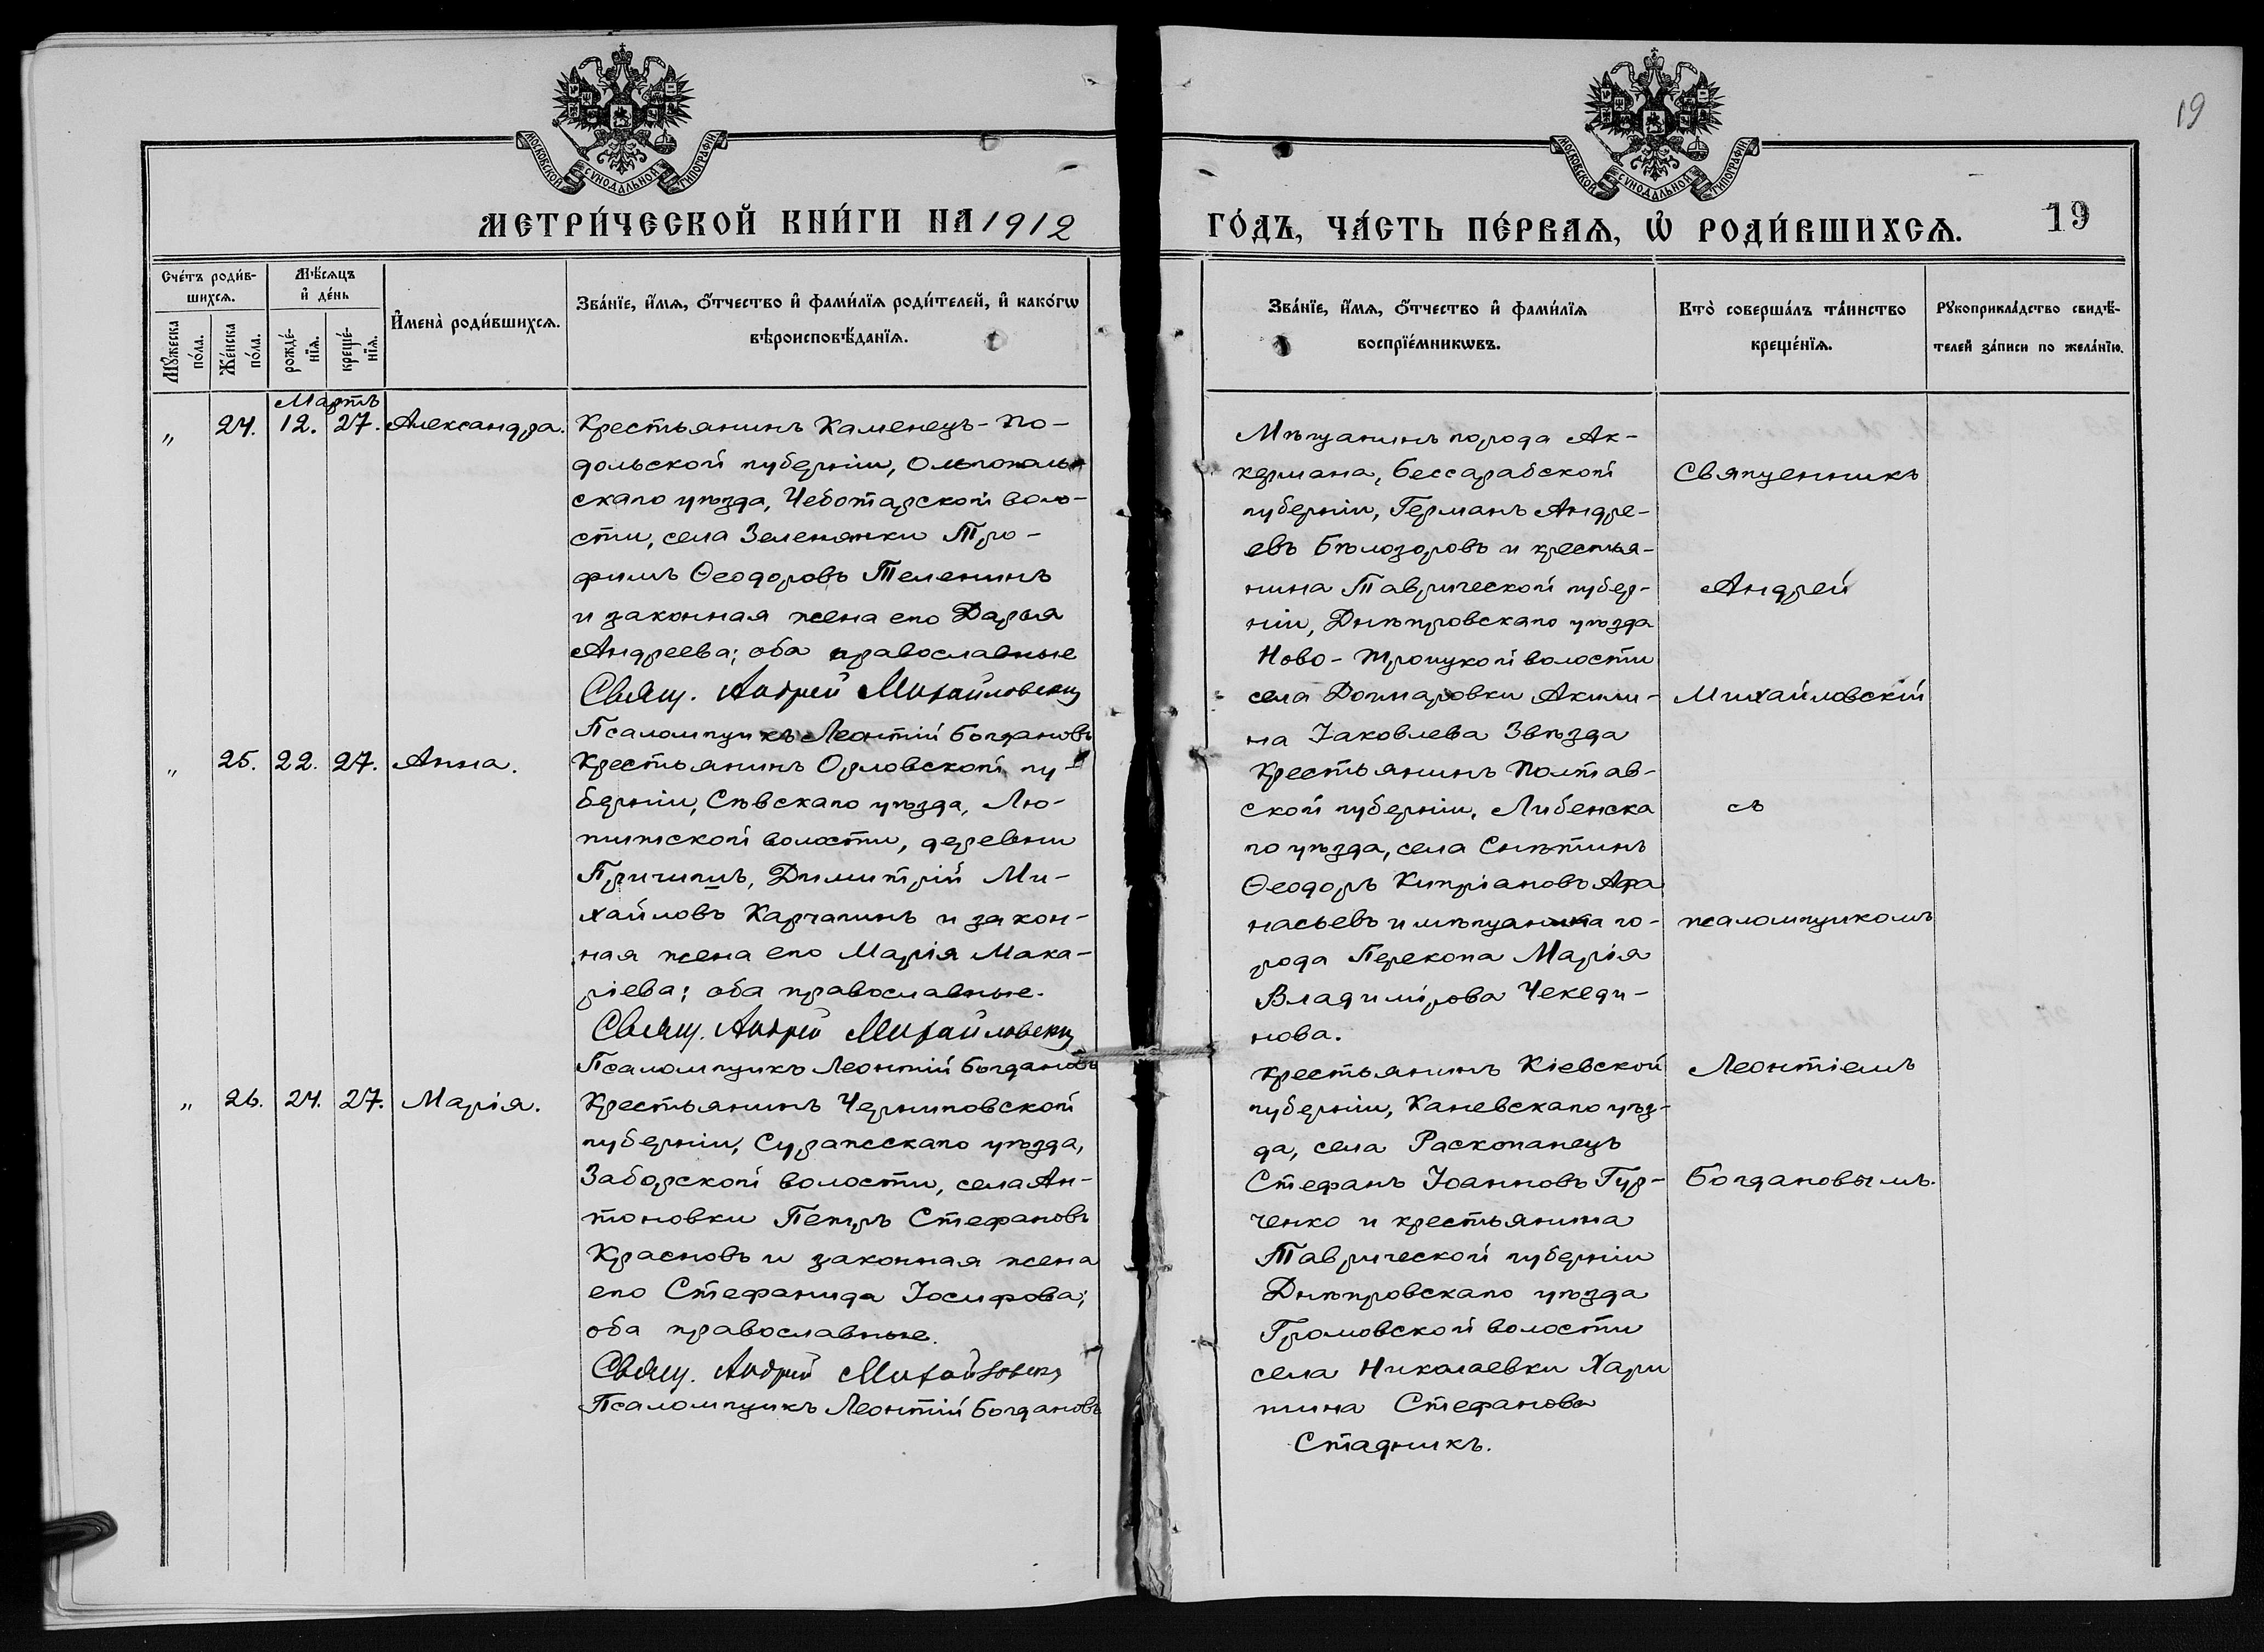 19
МОСКОВСКОЙ СѴНОДАЛЬНОЙ ТИПОГРАФІИ
МОСКОВСКОЙ СѴНОДАЛЬНОЙ ТИПОГРАФІИ
МЕТРИ́ЧЕСКОЙ КНИ́ГИ НА 1912
ГО́ДЪ, ЧА́СТЬ ПЕ́РВАѦ, Ѡ҆ РОДИ́ВШИХСѦ.
19
Сче́тъ роди́в-
шихсѧ.
Мꙋ́жеска
по́ла.
Же́нска
по́ла.
Мѣ́сѧцъ
и҆ де́нь
рожде́-
нїѧ.
креще́-
нїѧ.
И҆мена̀ роди́вшихсѧ.
Зва́нїе, и҆́мѧ, ѻ҆́тчество и҆ фами́лїѧ роди́телей, и҆ како́гѡ
вѣроисповѣ́данїѧ.
Зва́нїе, и҆́мѧ, ѻ҆́тчество и҆ фами́лїѧ
воспрїе́мникѡвъ.
Кто̀ соверша́лъ та́инство
креще́нїѧ.
Рꙋкоприкла́дство свидѣ́-
телей за́писи по жела́нїю.
Мартъ
" 24. 12. 27. Александра.
Крестьянинъ Каменецъ-По-
дольской губерніи, Ольгополь-
скаго уѣзда, Чеботарской воло-
сти, села Зеленянки Тро-
фимъ Ѳеодоровъ Теленинъ
и законная жена его Дарья
Андреева; оба православные
Свящ. Андрей Михайловскій
Псаломщикъ Леонтій Богдановъ
Мѣщанинъ города Ак-
кермана, Бессарабской
губерніи, Германъ Андре-
евъ Бѣлозоровъ и крестья-
нина Таврической губер-
ніи, Днѣпровскаго уѣзда
Ново-Троицкой волости
села Догмаровки Акили-
на Іаковлева Звѣзда
" 25. 22. 27. Анна.
Крестьянинъ Орловской гу-
берніи, Сѣвскаго уѣзда, Лю-
тижской волости, деревни
Пригичь, Димитрій Ми-
хайловъ Карчагинъ и закон-
ная жена его Марія Мака-
ріева; оба православные.
Свящ. Андрей Михайловскій
Псаломщикъ Леонтій Богдановъ
Крестьянинъ Полтав-
ской губерніи, Либенска
го уѣзда, села Снѣтинъ
Ѳеодоръ Кипріановъ Афа
насьевъ и мѣщанина го-
рода Перекопа Марія
Владимірова Чекеди-
нова.
" 26. 24. 27. Марія.
Крестьянинъ Черниговской
губерніи, Суражскаго уѣзда,
Заборской волости, села Ан-
тоновки Петръ Стефановъ
Красновъ и законная жена
его Стефанида Іосифова;
оба православные.
Свящ. Андрей Михайловскій
Псаломщикъ Леонтій Богдановъ
Крестьянинъ Кіевской
губерніи, Каневскаго уѣз-
да, села Раскопанецъ
Стефанъ Іоанновъ Гур-
ченко и крестьянина
Таврической губерніи
Днѣпровскаго уѣзда
Громовской волости
села Николаевки Хари
тина Стефанова
Стадникъ.
Священникъ
Андрей
Михайловскій
съ
псаломщикомъ
Леонтіемъ
Богдановымъ.